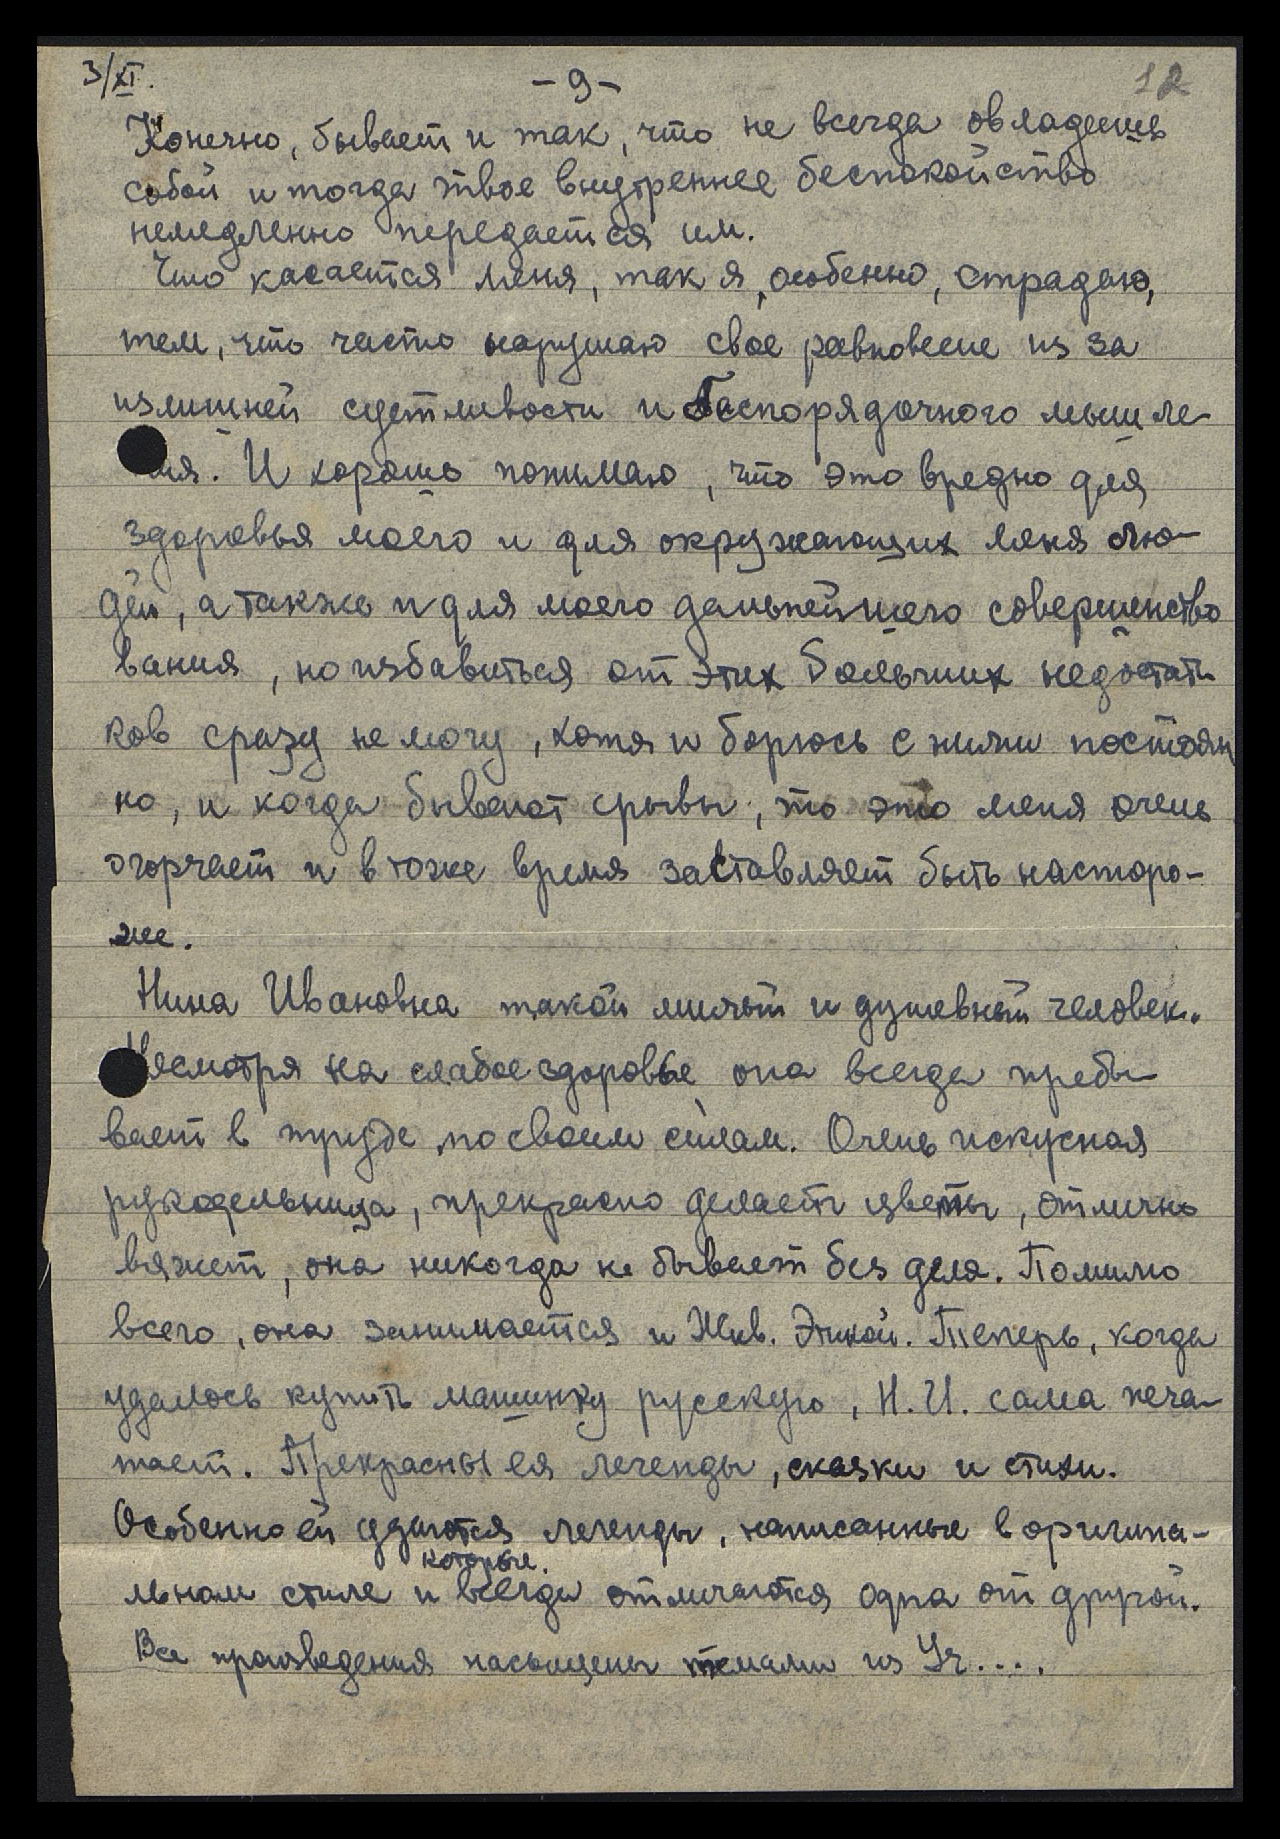 3/XI.
- 9 -
12
Конечно, бывает и так, что не всегда овладеешь
собой и тогда твое внутреннее беспокойство
немедленно передается им.
Что касается меня, так я, особенно, страдаю,
тем, что часто нарушаю свое равновесие из за
излишней суетливости и беспорядочного мышле-
ния. И хорошо понимаю, что это вредно для
здоровья моего и для окружающих меня лю-
дей, а также и для моего дальнейшего совершенство
вания, но избавиться от этих больших недостат-
ков сразу не могу, хотя и борюсь с ними постоян
но, и когда бывают срывы, то это меня очень
огорчает и в тоже время заставляет быть насторо-
же.
Нина Ивановна такой милый и душевный человек.
Несмотря на слабое здоровье она всегда пребы-
вает в труде, по своим силам. Очень искусная
рукодельница, прекрасно делает цветы, отлично
вяжет, она никогда не бывает без дела. Помимо
всего, она занимается и Жив. Этикой. Теперь, когда
удалось купить машинку русскую, Н. И. сама печа-
тает. Прекрасны ея легенды, сказки и стихи.
Особенно ей удаются легенды, написанные в оригина-
которые
льном стиле и всегда отличаются одна от другой.
Все произведения насыщены темами из Уч....